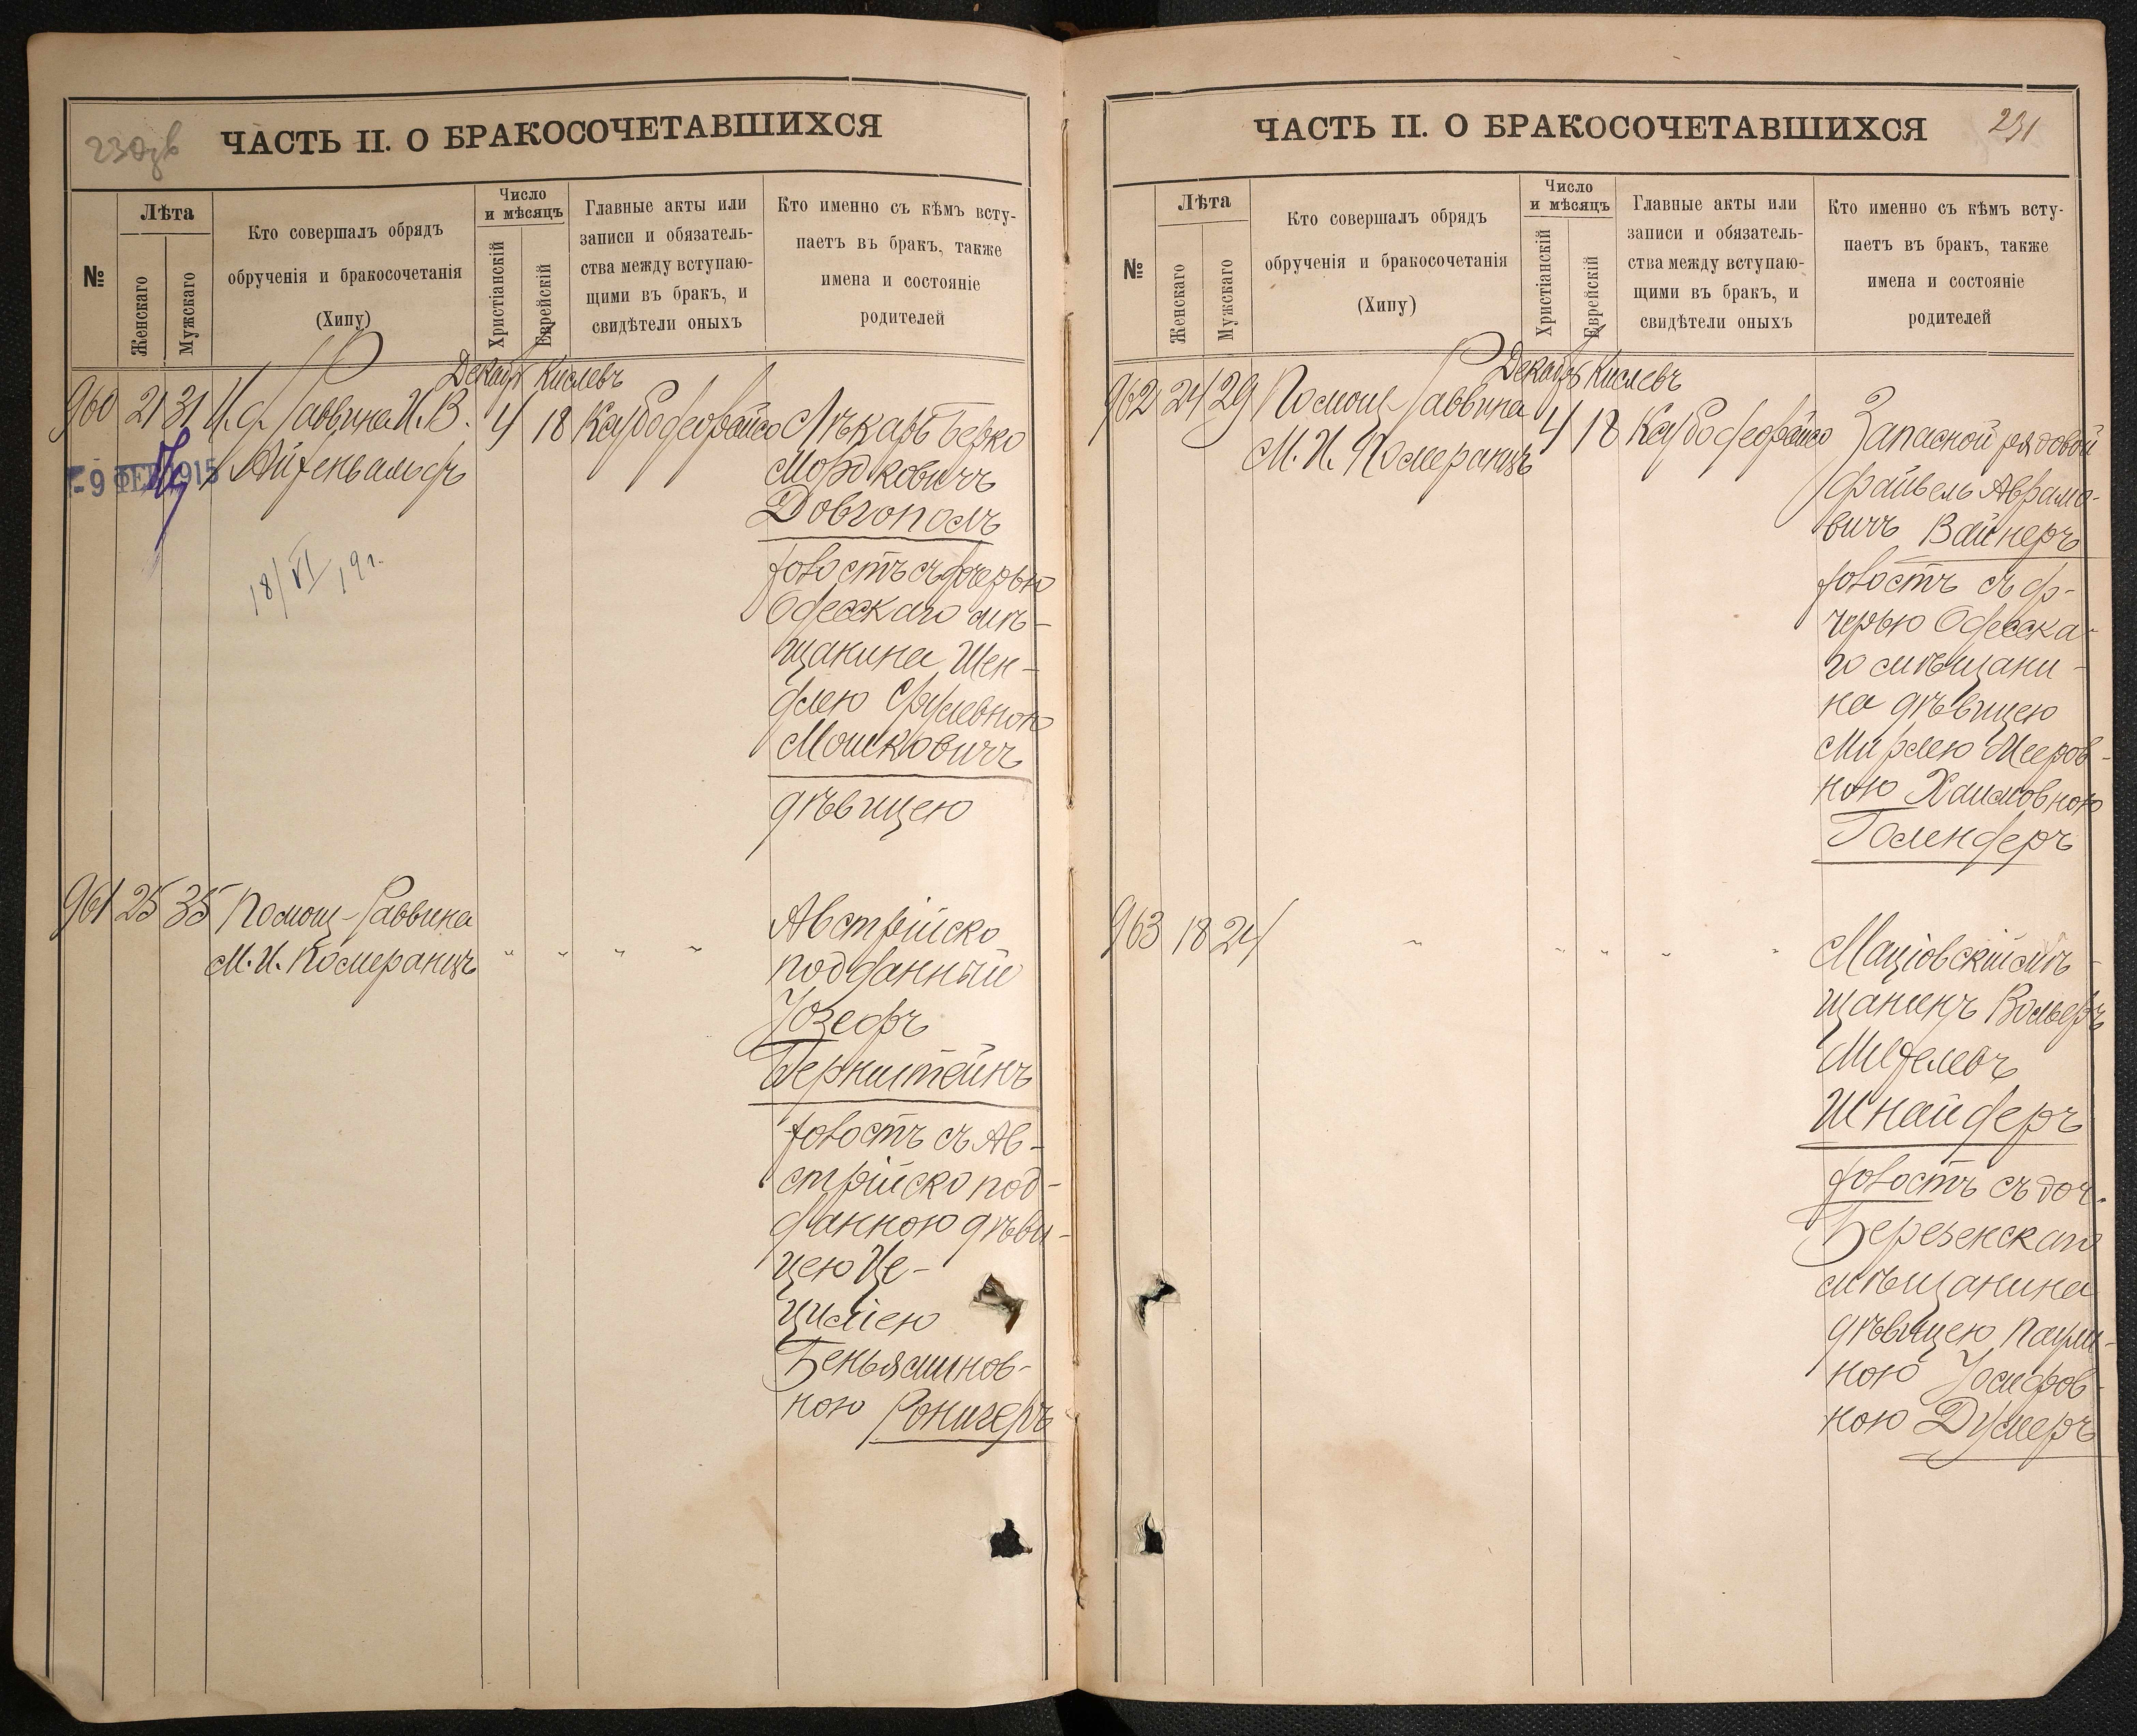 ЧАСТЬ II. О БРАКОСОЧЕТАВШИХСЯ
№
Лѣта
Женскаго
Мужскаго
Кто совершалъ обрядъ
обрученія и бракосочетанія
(Хипу)
Число
и мѣсяцъ
Христіанскій
Еврейскій
Главные акты или
записи и обязатель-
ства между вступаю-
щими въ бракъ, и
свидѣтели оныхъ
Кто именно съ кѣмъ всту-
паетъ въ бракъ, также
имена и состояніе
родителей
Декабр Кислевъ
960 21 31 И. д. Раввина И. В.
Айзенвальдъ
4 18
- 9 ФЕВ 1915
18/VI 19 г.
Лѣкарь Берко
Мордковичъ
Довгополъ
холостъ съ дочерью
Одесскаго мѣ-
щанина Шен-
длею Срулевною
Мошковичъ
дѣвицею
961 25 35 Помощ. Раввина
М. И. Померанцъ
" " " "
Австрійско
подданный
Іозефъ
Бернштейнъ
холостъ съ Ав-
стрійско под-
данною дѣви-
цею Це-
циліею
Беньяминов-
ною Ронигеръ
ЧАСТЬ II. О БРАКОСОЧЕТАВШИХСЯ
231
№
Лѣта
Женскаго
Мужскаго
Кто совершалъ обрядъ
обрученія и бракосочетанія
(Хипу)
Число
и мѣсяцъ
Христіанскій
Еврейскій
Главные акты или
записи и обязатель-
ства между вступаю-
щими въ бракъ, и
свидѣтели оныхъ
Кто именно съ кѣмъ всту-
паетъ въ бракъ, также
имена и состояніе
родителей
Декабр Кислевъ
962 24 29 Помощ. Раввина
М. И. Померанцъ
4 18
Запасной рядовой
Файвель Аврамо-
вичъ Вайнеръ
холостъ съ до-
черью Одесска-
го мѣщани-
на дѣвицею
Мирлею Мееров-
ною Хаимовною
Голендеръ
963 18 24
" " " " "
Маціовскій мѣ-
щанинъ Вольфъ
Шнайдеръ
холостъ съ доч.
Березенскаго
мѣщанина
дѣвицею Паули-
ною Іосифов-
ною Думеръ